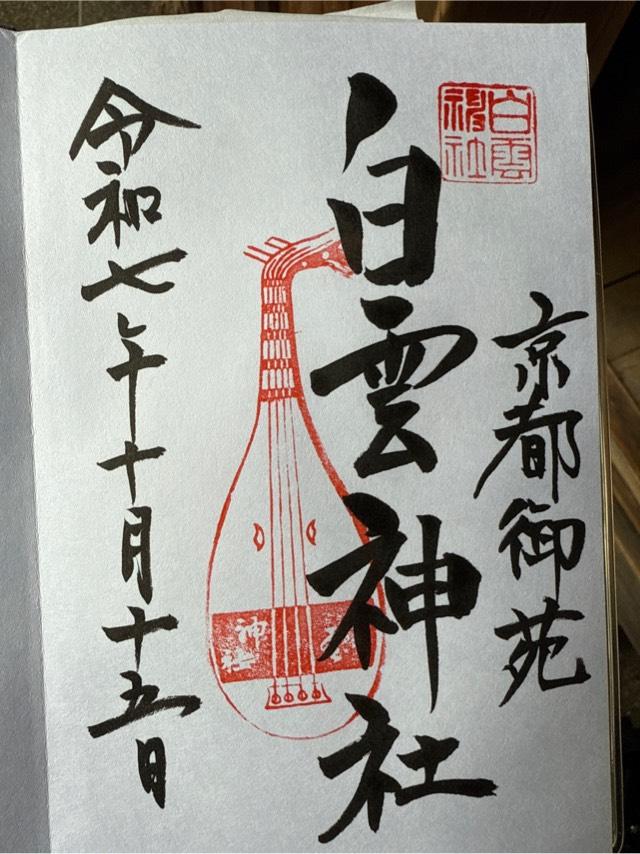 京都御苑
白雲
神社
白雲神社
神社
令和七年十月十五日